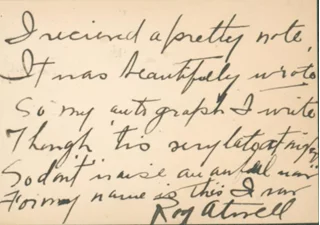 I recieved a pretty note,
It was beautifully wrote
So my autograph I write
Though 'tis very late at night
So don't raise an awful
For my name is this I
Roy Atwell